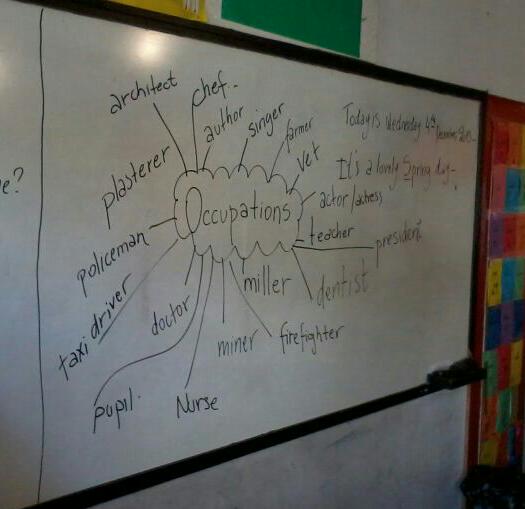 e?
architect
chef.
author
singer
farmer
vet
actor/actress
teacher
president
dentist
miller
firefighter
miner
Nurse
doctor
pupil.
taxi driver
policeman
plasterer
Occupations
Today is Wednesday 4th December
It's a lovely Spring day.